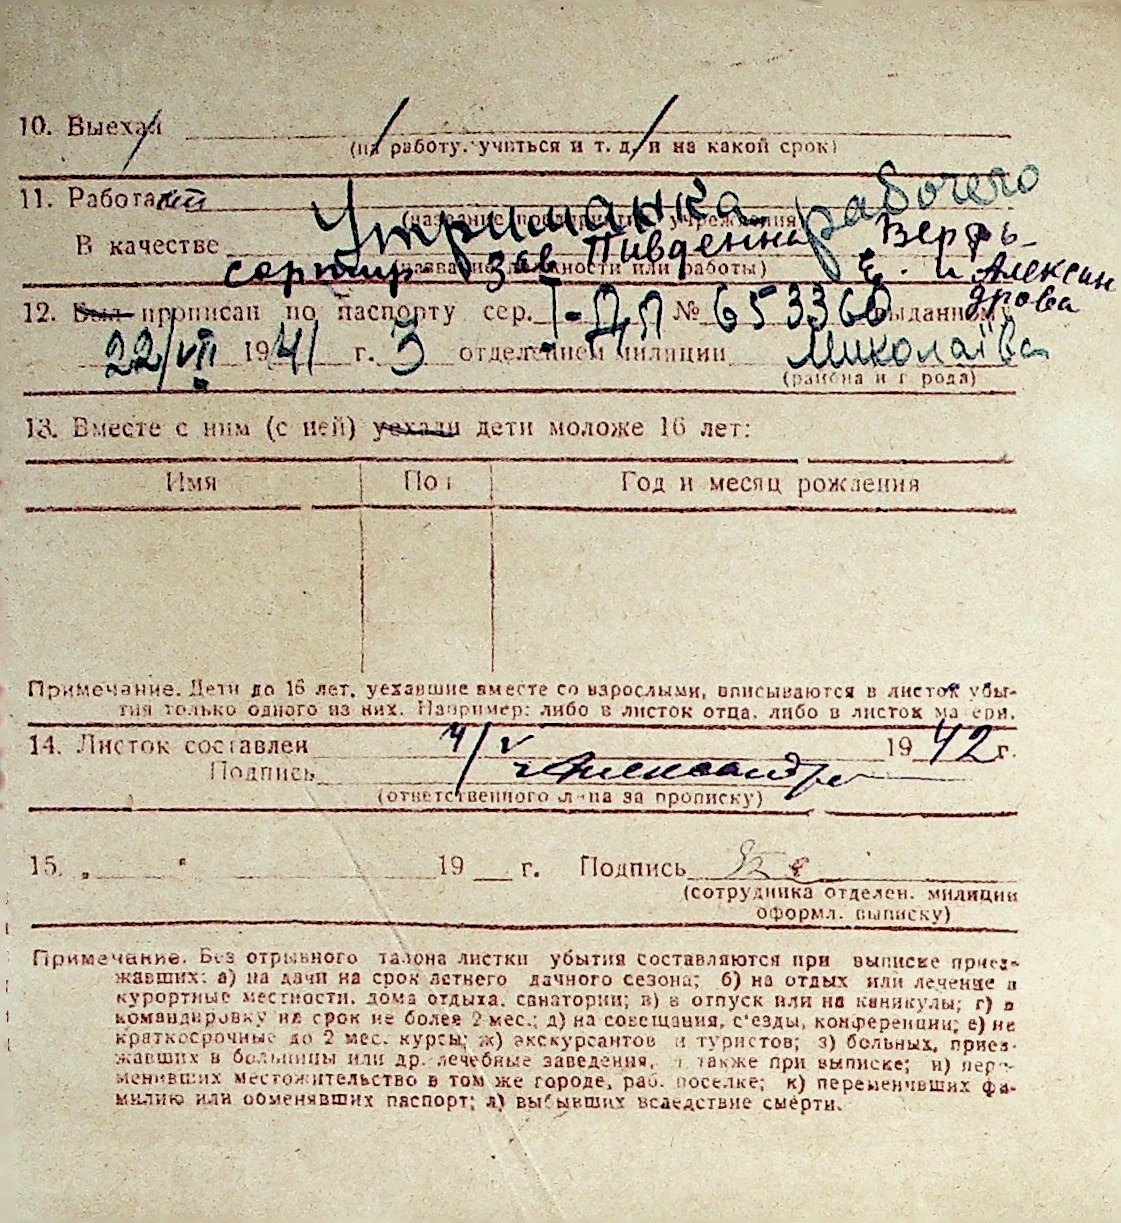 10. Выехал
(на работу, учиться и т. д. и на какой срок)
11. Работает Утриманка рабочего
(название предприятия, учреждения)
В качестве Зав Пивденна Верфь
(название должности или работы) Е. и Александрова
12. Был прописан по паспорту сер. I-ДП № 653360 выданному
22/VII 1941 г. 3 отделением милиции Миколаїва
(района и города)
13. Вместе с ним (с ней) уехали дети моложе 16 лет:
Имя Пол Год и месяц рождения
Примечание. Дети до 16 лет, уехавшие вместе со взрослыми, вписываются в листок убы-
тия только одного из них. Например: либо в листок отца, либо в листок матери.
14. Листок составлен 4/V 1942 г.
Подпись
(ответственного лица за прописку)
15. „ " 19 г. Подпись
(сотрудника отделен. милиции
оформл. выписку)
Примечание. Без отрывного талона листки убытия составляются при выписке приез-
жавших: а) на дачи на срок летнего дачного сезона; б) на отдых или лечение в
курортные местности, дома отдыха, санатории; в) в отпуск или на каникулы; г) в
командировку на срок не более 2 мес.; д) на совещания, с'езды, конференции; е) не
краткосрочные до 2 мес. курсы; ж) экскурсантов и туристов; з) больных, приез-
жавших в больницы или др. лечебные заведения, а также при выписке; и) пере-
менивших местожительство в том же городе, раб. поселке; к) переменивших фа-
милию или обменявших паспорт; л) выбывших вследствие смерти.